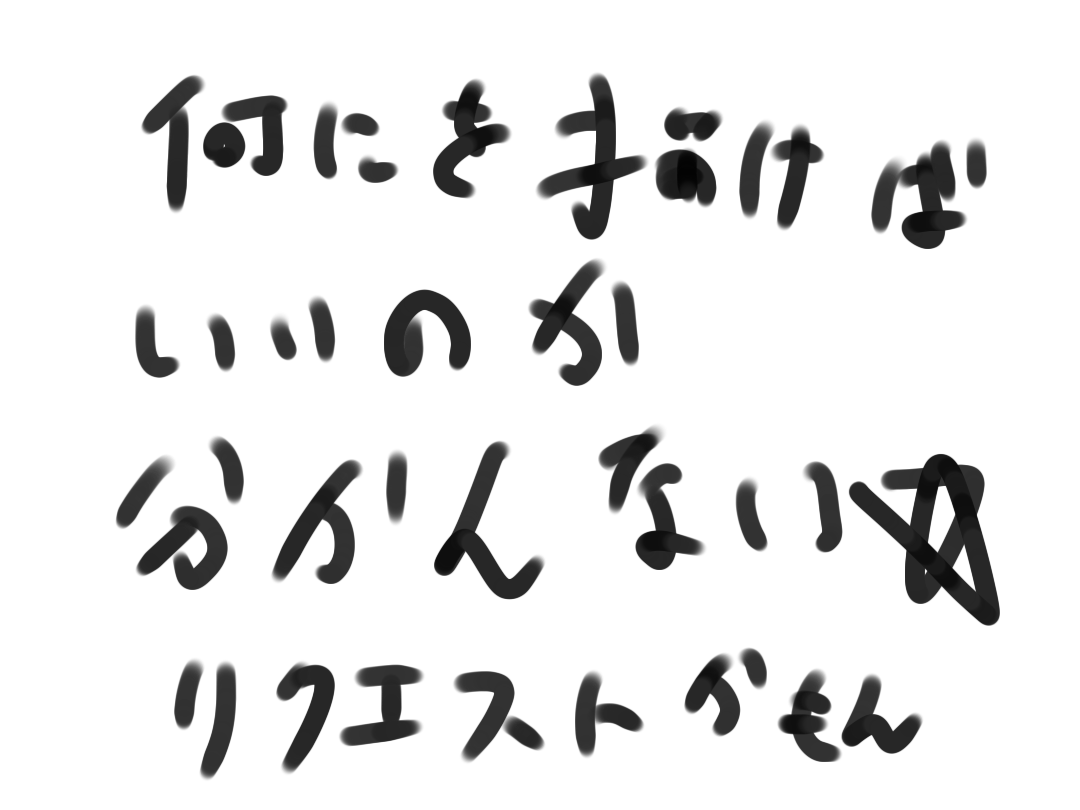 何にを描けば
いいのか
分かんない☆
リクエストかもん